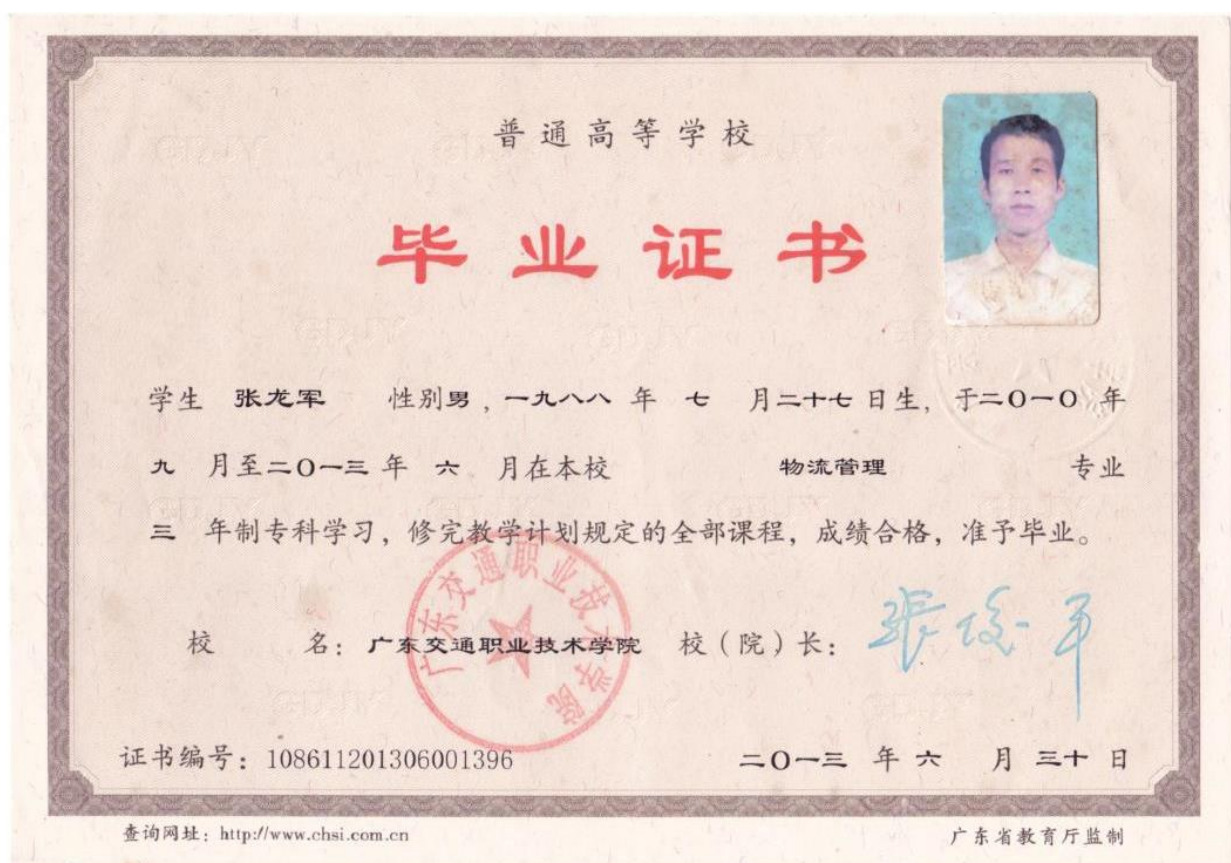 普通高等学校
毕业证书
学生 张龙军 性别男，一九八八 年 七 月二十七日生，于二O一O 年
九 月至二O一三 年 六 月在本校 物流管理 专业
三 年制专科学习，修完教学计划规定的全部课程，成绩合格，准予毕业。
广东交通职业技术学院
校 名：广东交通职业技术学院 校（院）长：
证书编号：108611201306001396 二O一三 年 六 月 三十 日
查询网址：http://www.chsi.com.cn 广东省教育厅监制